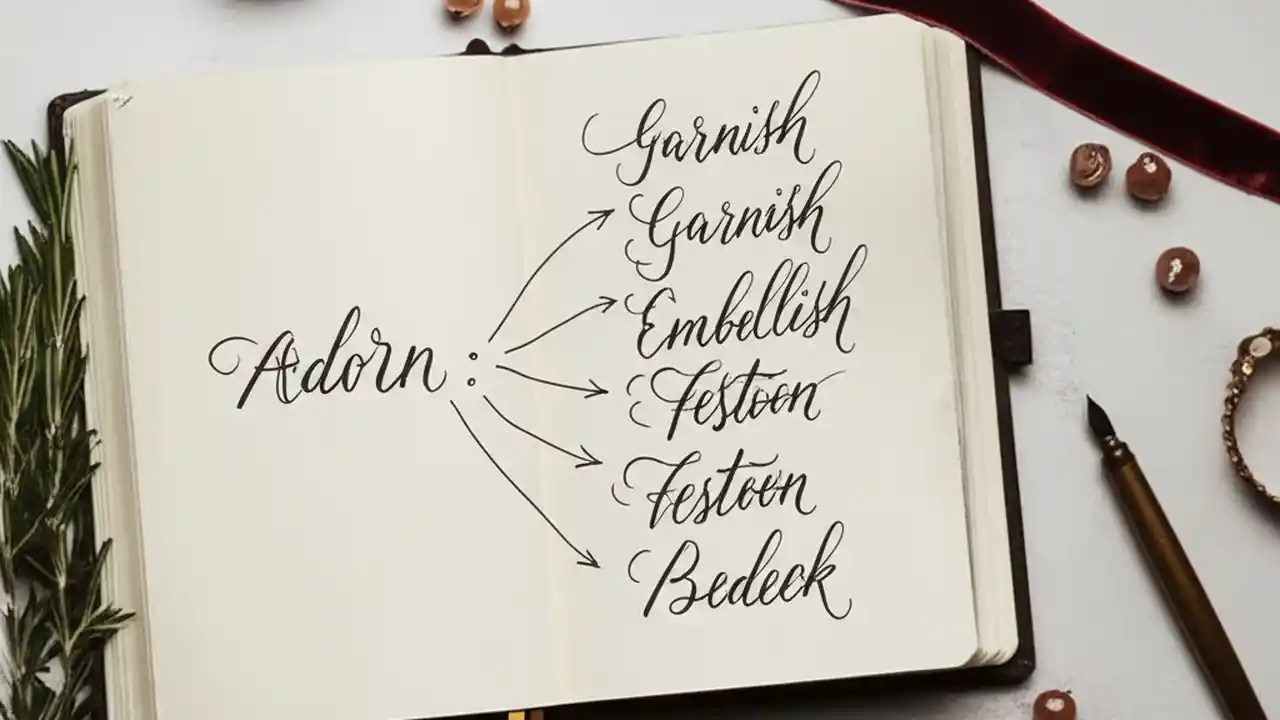 Adorn :
Garnish
Garnish
Embellish
Festoon
Festoon
Bedeck